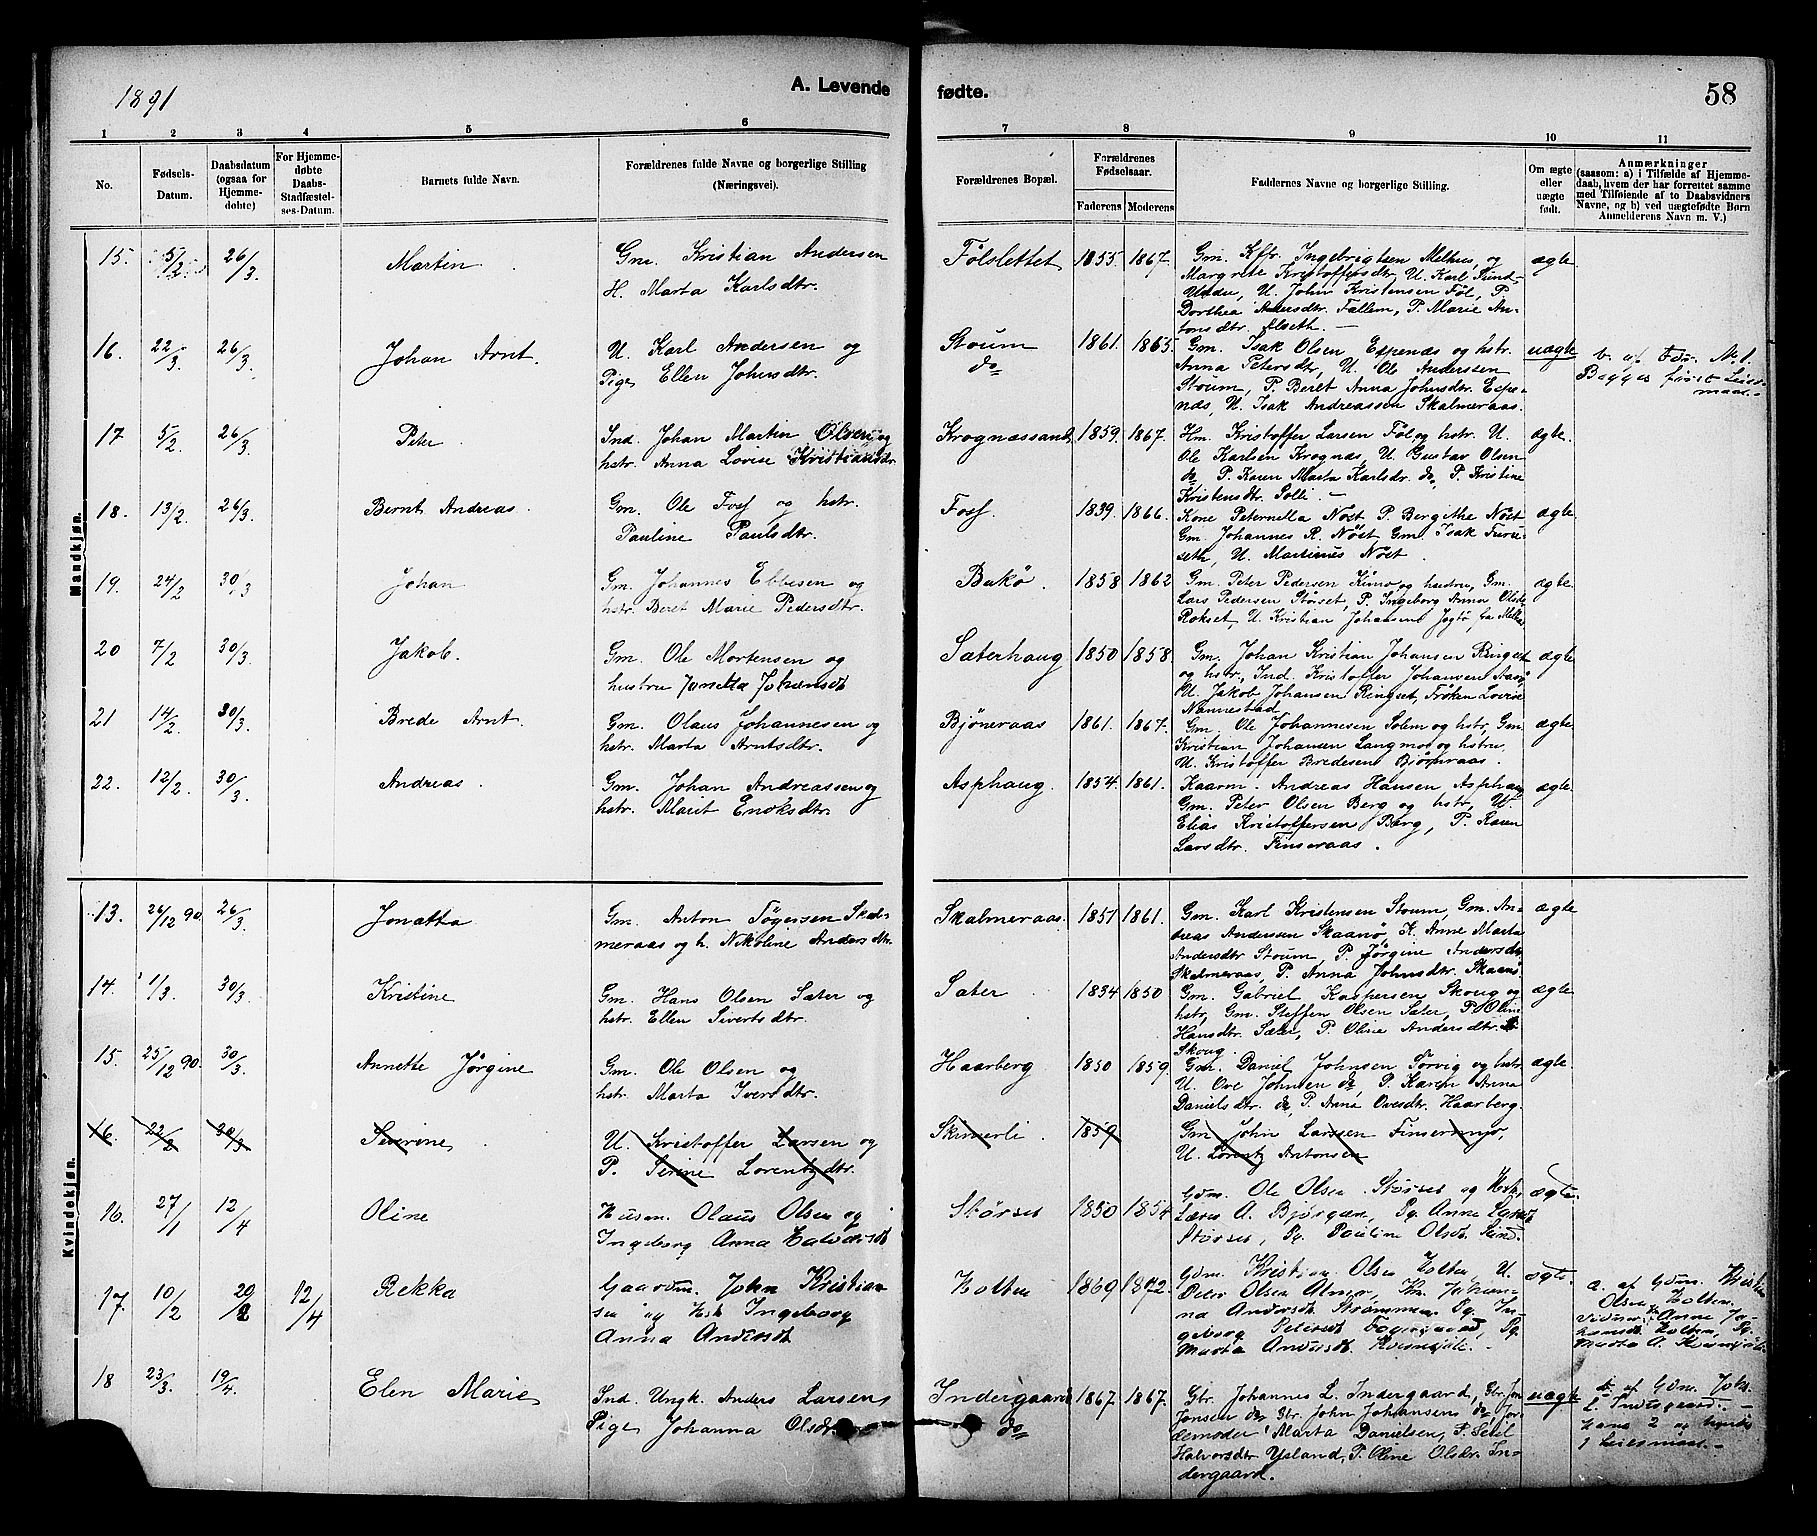 1891
A. Levende fødte.
58
1 2 3 4 5 6 7 8 9 10 11
No.
Fødsels-Datum.
Daabsdatum (ogsaa for Hjemme-døbte)
For Hjemme-døbte Daabs-Stadfæstel-ses-Datum.
Barnets fulde Navn.
Forældrenes fulde Navne og borgerlige Stilling (Næringsvei).
Forældrenes Bopæl.
Forældrenes Fødselsaar.
Faderens Moderens
Faddernes Navne og borgerlige Stilling.
Om ægte eller uægte født.
Anmærkninger (saasom: a) i Tilfælde af Hjemme-daab, hvem der har forrettet samme med Tilføiende af to Daabsvidners Navne, og b) ved uægtefødte Børn Anmelderens Navn m. V.)
Mandkjøn.
15. 5/2 26/3 Martin
Gm. Kristian Andersen
H. Marta Karlsdtr.
Følslettet 1855 1867.
Gm. Kffr. Ingebrigtsen Melhus, og
Margrete Kristoffersdtr, U. Karl
U. John Kristensen Føl, P.
Dorthea Andersdtr. Fallem, P. Marie An-
tonsdtr.
ægte
16. 22/3 26/3 Johan Arnt.
U. Karl Andersen og
Pige Ellen Johnsdtr.
Stoum do 1861. 1865.
Gm. Isak Olsen Espenæs og hstr.
Anna Petersdtr, U. Ole Andersen
Stoum, P. Beret Anna Johnsdtr. Espe-
næs, U. Isak Andreassen Skalmeraas.
uægte
b. af Før. No 1.
Begges første Leier-
maal.
17 5/2 26/3 Peter
Ind. Johan Martin Olsen og
hstr. Anna Lovise Kristiansdtr
Krognæssand 1859. 1867.
Hm. Kristoffer Larsen Føl og hstr. U.
Ole Karlsen Krognæs, U. Gustav Olsen
do P. Karen Marta Karlsdr. do, P. Kristine
Kristensdtr. Solli.
ægte.
18. 13/2 26/3 Bernt Andreas.
Gm. Ole Foss og hstr.
Pauline Paulsdtr.
Foss. 1839. 1866.
Kone Peternella Nøst P. Bergithe Nøst
Gm. Johannes R. Nøst Gm. Isak Fure-
seth, U. Martinus Nøst.
ægte.
19. 24/2 30/3 Johan
Gm. Johannes Ebbesen og
hstr. Beret Marie Pedersdtr.
Bakø. 1858 1862
Gm. Peter Pedersen Kimo og hustru, Gm.
Lars Pedersen Størset, P. Ingeborg Anna Olsdr
Rokset, U. Kristian Johansen Jøgtø, fra Melhus
ægte.
20 7/2 30/3 Jakob.
Gm. Ole Mortensen og
hustru Jonetta Johansdt
Sæterhaug 1850 1858.
Gm. Johan Kristian Johansen Ringset
og hstr., Ind. Kristoffer Johansen
U. Jakob Johansen Ringset, Frøken Lovise
Nannestad
ægte
21 14/2 30/3 Brede Arnt.
Gm. Olaus Johannesen og
hstr. Marta Arntsdtr.
Bjøneraas 1861. 1867.
Gm. Ole Johannesen Solem og hstr, Gm.
Kristian Johansen Langmo og hstru
U. Kristoffer Bredesen Bjørnraas.
ægte
22. 12/2 30/3 Andreas.
Gm. Johan Andreassen og
hstr. Marit Enoksdtr.
Asphaug. 1854. 1861.
Kaarm. Andreas Hansen Asphaug
Gm. Peter Olsen Berg og hstr, U.
Elias Kristoffersen Berg, P. Karen
Larsdtr. Finseraas.
ægte.
Kvindekjøn.
13. 26/12 90. 26/3 Jonetta
Gm. Anton Tøgersen Skal-
meraas og h. Nikoline Andersdtr.
Skalmeraas. 1851 1861.
Gm. Karl Kristensen Stoum, Gm. An-
dreas Andersen Skaanø, K. Anne Marta
Andersdtr Stoum, P. Jørgine Andersdtr
Skalmeraas, P. Anna Johnsdtr. Skaanø
ægte
14. 1/3 30/3 Kristine
Gm. Hans Olsen Sæter og
hstr. Ellen Sivertsdtr.
Sæter 1834 1850
Gm. Gabriel Kaspersen Skoug og
hstr, Gm. Steffen Olsen Sæter, P. Oline
Hansdtr. Sæter, P Oline Andersdtr.
Skoug.
ægte
15. 25/12 90. 30/3 Annette Jørgine
Gm. Ole Olsen og
hstr. Marta Iversdtr.
Haarberg 1850 1859.
Gm. Daniel Johnsen Torvig og hstr
U. Ove Johnsen do, P. Karen Anna
Danielsdtr. do, P. Anna Ovesdtr. Haarberg.
ægte.
16. 22/2 30/3 Severine
U. Kristoffer Larsen og
P. Serine Lorentzdtr.
Skimerli. 1859
Gm John Larssen Finsermyr,
U. Lorentz Antonsen
16. 27/1 12/4 Oline
Husm. Olaus Olsen og
Ingeborg Anna Halvorsdt
Størset 1850 1854
Gdm. Ole Olsen Størset og Hstr
Lava A. Bjørgan, Pg. Anne Larsdt
Størset, Pg. Pauline Olsdt.
ægte.
17. 10/2 20/2 12/4 Rekka
Gaardm. John Kristian-
sen og Hst Ingeborg
Anna Andersdt
Holten 1869 1872.
Gdm. Kristian Olsen Holten, U.
Peter Olsen Almer, Km. Johan-
na Andersdt. Strømmen, Pg. In-
geborg Petersdt. , Pg.
Marta Andersdt.
ægte.
a. af Gdm. Kristen
Olsen Holten.
Vidner: Anne Jo-
hansdt. Holten, Pg.
Marta A.
18 23/3 19/4 Elen Marie
Ind. Ungk. Anders Larsen
Pige Johanna Olsdr.
Indergaard do 1867. 1867.
Gbr. Johannes L. Indergaard, Gbr. Jon
Jonsen do, Gbr. John Johansen do, Jor-
demoder Marta Danielsen, P.
Halvorsdtr Ysland, P. Oline Olsdr. In-
dergaard.
uægte
b. af Gdm. Johs.
L. Indergaard.
Hans 2 og hendes
1 Leiermaal.